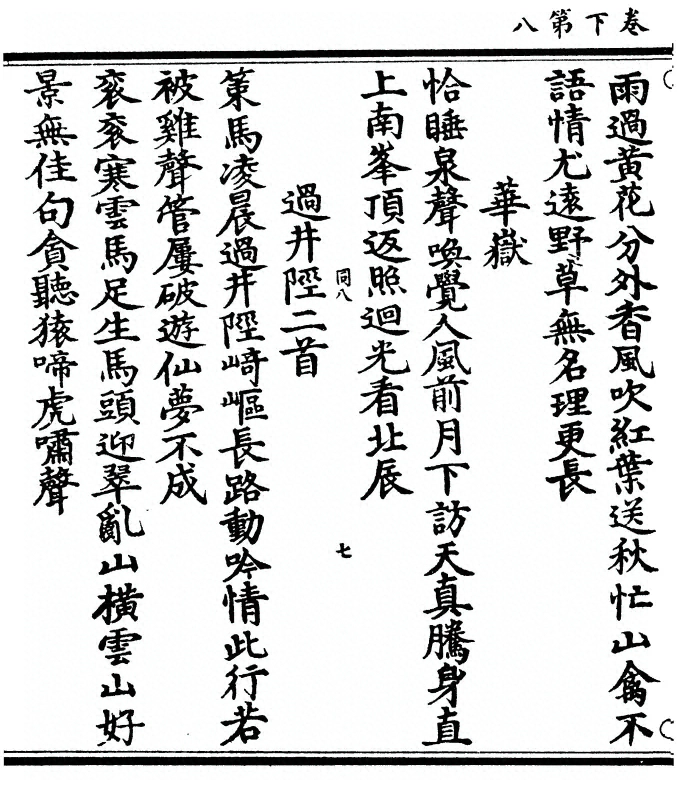 卷下第八
雨過黃花分外香風吹紅葉送秋忙山禽不
語情尤遠野草無名理更長
華嶽
恰睡泉聲喚覺人風前月下訪天真騰身直
上南峯頂返照迴光看北辰
同八
七
過井陘二首
策馬凌晨過井陘崎嶇長路動吟情此行若
被雞聲管屢破遊仙夢不成
衮衮寒雲馬足生馬頭迎翠亂山橫雲山好
景無佳句貪聽猿啼虎嘯聲